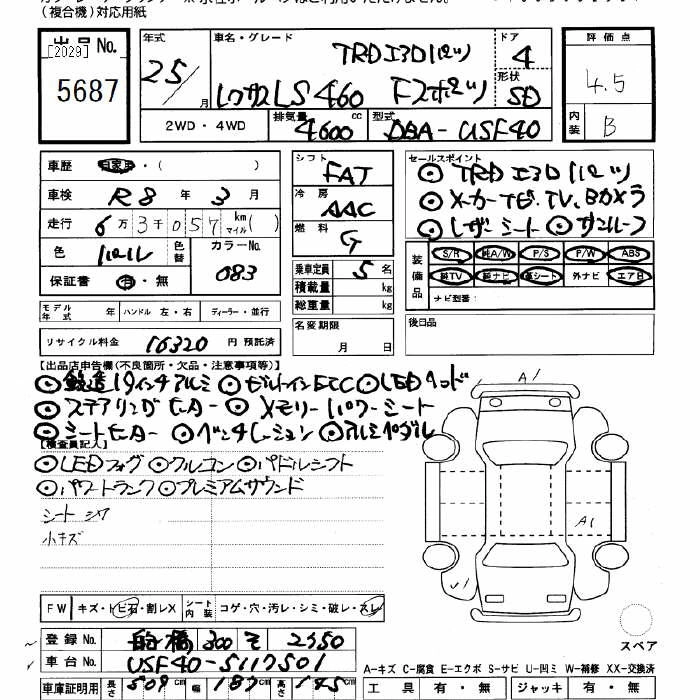 (複合機)対応用紙
出品 No. 年式 車名・グレード ドア 評価点
[2029] TRD エアロパーツ 4
5687 25/月 レクサス LS460 Fスポーツ 形状 SD 4.5
2WD・4WD 排気量 4600 cc 型式 DBA-USF40 内装 B
車歴 自家用・( ) シフト FAT セールスポイント
車検 R8 年 3 月 冷房 AAC ◎TRD エアロパーツ
走行 6万3千057 km マイル( ) ◎メーカーナビ、TV、Bカメラ
燃料 G ◎レザーシート ◎サンルーフ
色 パール 色替 カラーNo. 083
装備品 S/R 純A/W P/S P/W ABS
保証書 有・無 乗車定員 5名 純TV 純ナビ 革シート 外ナビ エアB
積載量 kg ナビ型番:
モデル年式 年 ハンドル 左・右 ディーラー・並行 総重量 kg
リサイクル料金 16320 円 預託済 名変期限 月 日 後日品
【出品店申告欄(不良箇所・欠品・注意事項等)】
◎鍛造19インチアルミ ◎ビルトインETC ◎LEDヘッド
◎ステアリングヒーター ◎メモリーパワーシート
◎シートヒーター ◎ベンチレーション ◎アルミペダル
【検査員記入】
◎LEDフォグ ◎クルコン ◎パドルシフト
◎パワートランク ◎プレミアムサウンド
シート シワ
小キズ
A1
A1
FW キズ・トビ石・割レX シート内装 コゲ・穴・汚レ・シミ・破レ・スレ
スペア
登録 No. 船橋 300 そ 2350
車台 No. USF40-5117501
A-キズ C-腐食 E-エクボ S-サビ U-凹ミ W-補修 XX-交換済
車庫証明用 長さ 509 cm 幅 187 cm 高さ 145 cm 工具 有・無 ジャッキ 有・無